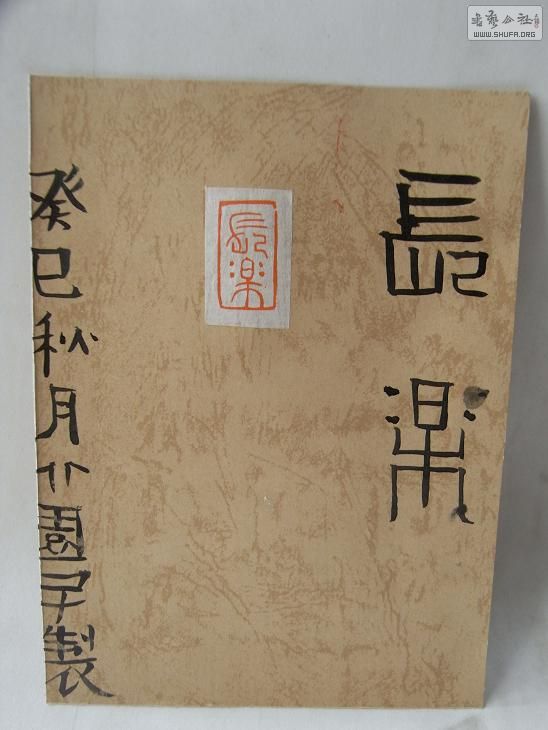 長樂
長樂
癸巳秋月竹園子製
書藝公社
WWW.SHUFA.ORG